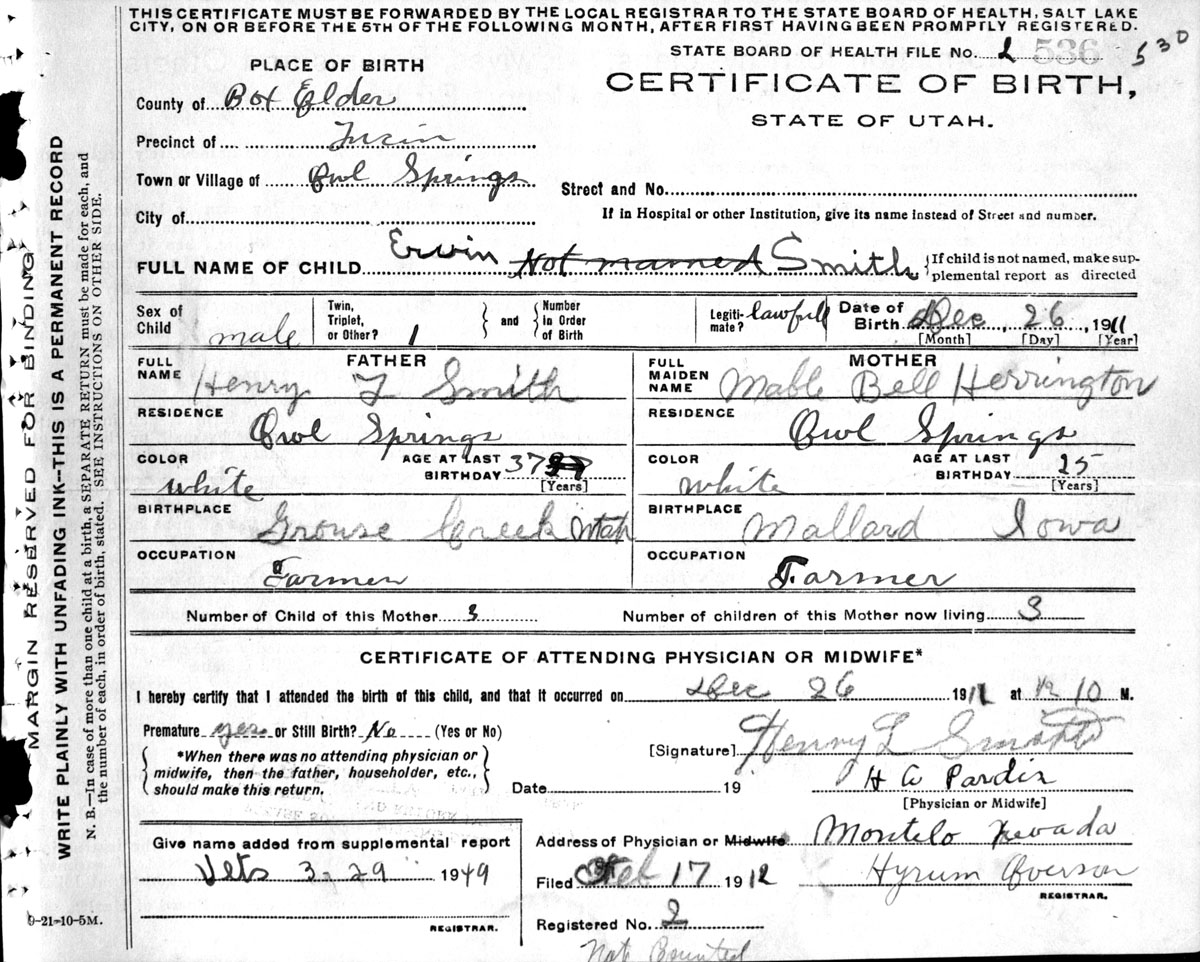 THIS CERTIFICATE MUST BE FORWARDED BY THE LOCAL REGISTRAR TO THE STATE BOARD OF HEALTH, SALT LAKE
CITY, ON OR BEFORE THE 5TH OF THE FOLLOWING MONTH, AFTER FIRST HAVING BEEN PROMPTLY REGISTERED.
STATE BOARD OF HEALTH FILE No. 2 536 530
PLACE OF BIRTH
CERTIFICATE OF BIRTH,
STATE OF UTAH.
County of Box Elder
Precinct of
Town or Village of Owl Springs
Street and No.
City of
If in Hospital or other Institution, give its name instead of Street and number.
FULL NAME OF CHILD Erwin Not named Smith {If child is not named, make sup-
plemental report as directed
Sex of Child male
Twin, Triplet, or Other? 1 } and { Number in Order of Birth
Legiti-mate? lawfull
Date of Birth Dec 26, 1911
[Month] [Day] [Year]
FATHER
FULL NAME Henry L Smith
MOTHER
FULL MAIDEN NAME Mable Bell Herrington
RESIDENCE Owl Springs
RESIDENCE Owl Springs
COLOR white AGE AT LAST BIRTHDAY 37 [Years]
COLOR white AGE AT LAST BIRTHDAY 25 [Years]
BIRTHPLACE Grouse Creek Utah
BIRTHPLACE Mallard Iowa
OCCUPATION Farmer
OCCUPATION Farmer
Number of Child of this Mother 3
Number of children of this Mother now living 3
CERTIFICATE OF ATTENDING PHYSICIAN OR MIDWIFE*
I hereby certify that I attended the birth of this child, and that it occurred on Dec 26 1911 at 12 10 M.
Premature yes or Still Birth? No (Yes or No)
{ *When there was no attending physician or
midwife, then the father, householder, etc.,
should make this return. }
[Signature] Henry L Smith
H A Pardix
Date 19
[Physician or Midwife]
Give name added from supplemental report
Vets 3-29 1949
REGISTRAR.
Address of Physician or Midwife Montelo Nevada
Filed Feb 17 1912 Hyrum
REGISTRAR.
Registered No. 2
Not Bounted
9-21-10-5M.
MARGIN RESERVED FOR BINDING
WRITE PLAINLY WITH UNFADING INK—THIS IS A PERMANENT RECORD
N. B.—In case of more than one child at a birth, a SEPARATE RETURN must be made for each, and
the number of each, in order of birth, stated. SEE INSTRUCTIONS ON OTHER SIDE.